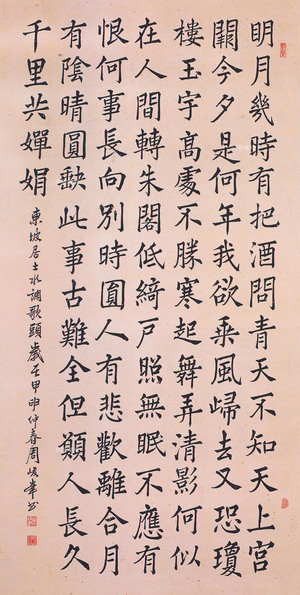 明月幾時有把酒問青天不知天上宮
闕今夕是何年我欲乘風歸去又恐瓊
樓玉宇高處不勝寒起舞弄清影何似
在人間轉朱閣低綺戶照無眠不應有
恨何事長向別時圓人有悲歡離合月
有陰晴圓缺此事古難全但願人長久
千里共嬋娟
東坡居士水調歌頭歲在甲申仲春周峯書